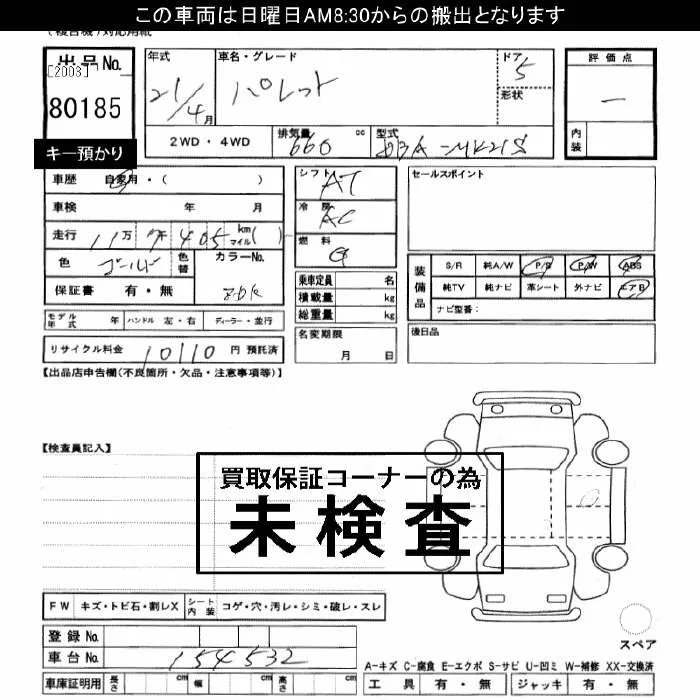 この車両は日曜日AM8:30からの搬出となります
出品No.
[2003]
80185
キー預かり
年式
21/4月
車名・グレード
パレット
ドア
5
形状
評価点
―
内装
2WD・4WD
排気量 660 cc
型式 DBA-MK21S
車歴 自家用・( )
車検 年 月
走行 11万 7千405 km マイル( )
色 ゴールド 色替 カラーNo.
保証書 有・無
モデル年式 年 ハンドル 左・右 ディーラー・並行
リサイクル料金 10110 円 預託済
シフト AT
冷房 AC
燃料 G
乗車定員 名
積載量 kg
総重量 kg
名変期限
月 日
セールスポイント
装備品
S/R 純A/W P/S P/W ABS
純TV 純ナビ 革シート 外ナビ エアB
ナビ型番:
後日品
【出品店申告欄(不良箇所・欠品・注意事項等)】
【検査員記入】
買取保証コーナーの為
未検査
FW キズ・トビ石・割レX シート内装 コゲ・穴・汚レ・シミ・破レ・スレ
登録No.
車台No. 154532
車庫証明用 長さ cm 幅 cm 高さ cm
スペア
A-キズ C-腐食 E-エクボ S-サビ U-凹ミ W-補修 XX-交換済
工具 有・無 ジャッキ 有・無